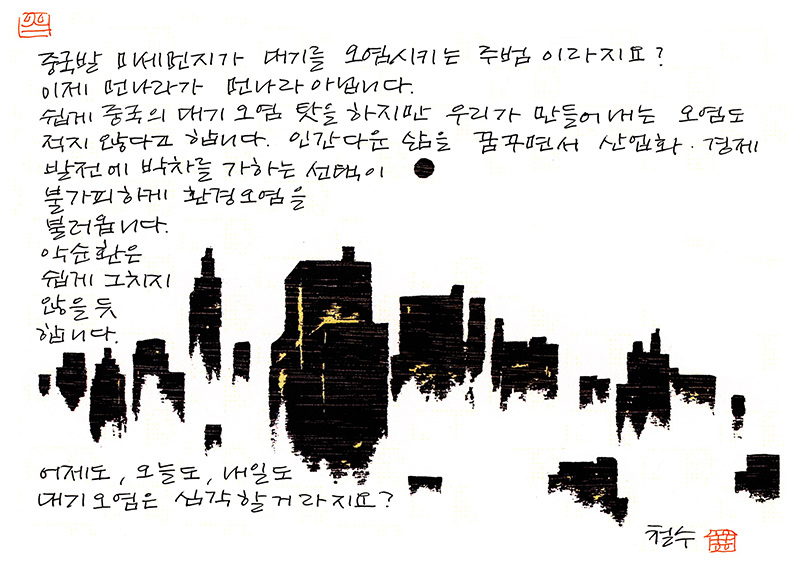 중국발 미세먼지가 대기를 오염시키는 주범이라지요?
이제 먼나라가 먼나라 아닙니다.
쉽게 중국의 대기오염 탓을 하지만 우리가 만들어내는 오염도
적지 않다고 합니다. 인간다운 삶을 꿈꾸면서 산업화·경제
발전에 박차를 가하는 선택이
불가피하게 환경오염을
불러옵니다.
악순환은
쉽게 그치지
않을 듯
합니다.
어제도, 오늘도, 내일도
대기오염은 심각할거라지요?
철수